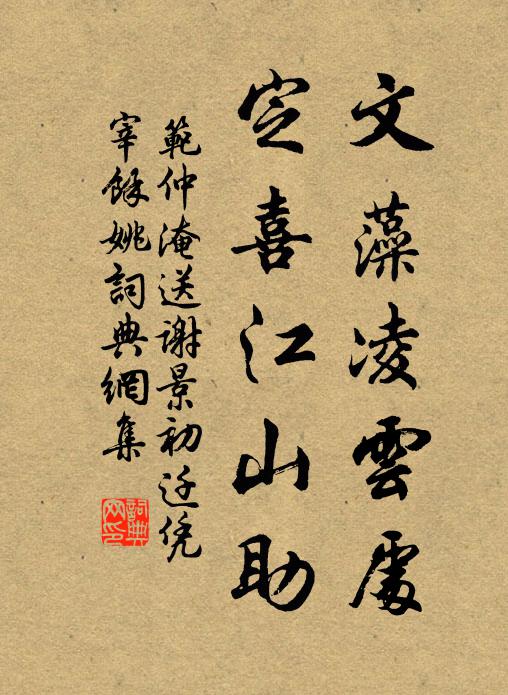 文藻凌雲處
定喜江山助
範仲淹送謝景初迁凭
宰餘姚詞典網集
詞典網印